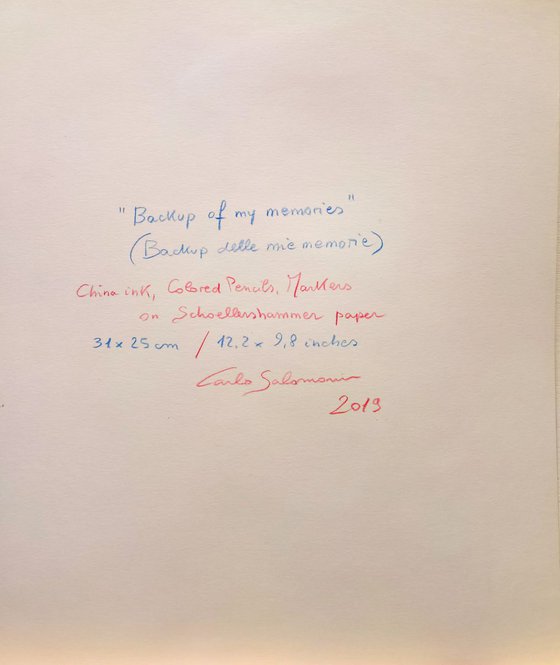 "Backup of my memories"
(Backup delle mie memorie)
China ink, Colored Pencils, Markers
on Schoellershammer paper
31 x 25 cm / 12,2 x 9,8 inches
Carlo Salomoni
2019